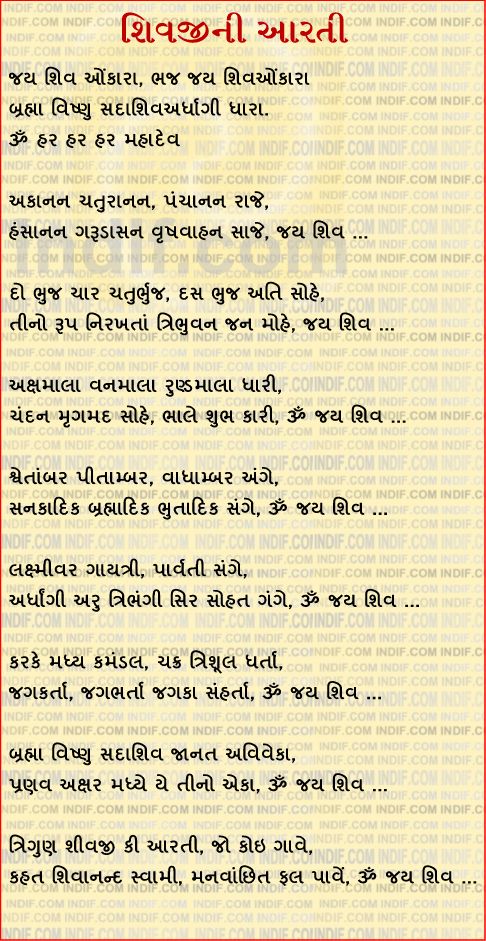 શિવજીની આરતી
જય શિવ ઓંકારા, ભજ જય શિવઓંકારા
બ્રહ્મા વિષ્ણુ સદાશિવઅર્ધાગી ધારા.
ૐ હર હર હર મહાદેવ
અકાનન ચતુરાનન, પંચાનન રાજે,
હંસાનન ગરૂડાસન વૃષવાહન સાજે, જય શિવ ...
Indif.com
દો ભુજ ચાર ચતુર્ભુજ, દસ ભુજ અતિ સોહે,
તીનો રૂપ નિરખતાં ત્રિભુવન જન મોહે, જય શિવ ...
અક્ષમાલા વનમાલા રુણ્ડમાલા ધારી,
ચંદન મૃગમદ સોહે, ભાલે શુભ કારી, ૐ જય શિવ ...
શ્વેતાંબર પીતામ્બર, વાધામ્બર અંગે,
સનકાદિક બ્રહ્માદિક ભુતાદિક સંગે, ૐ જય શિવ ...
લક્ષ્મીવર ગાયત્રી, પાર્વતી સંગે,
અર્ધાંગી અરુ ત્રિભંગી સિર સોહત ગંગે, ૐ જય શિવ ...
કરકે મધ્ય કમંડલ, ચક્ર ત્રિશૂલ ધર્તા,
જગકર્તા, જગભર્તા જગકા સંહર્તા, ૐ જય શિવ ...
બ્રહ્મા વિષ્ણુ સદાશિવ જાનત અવિવેકા,
પ્રણવ અક્ષર મધ્યે યે તીનો એકા, ૐ જય શિવ ...
ત્રિગુણ શીવજી કી આરતી, જો કોઇ ગાવે,
કહત શિવાનન્દ સ્વામી, મનવાંછિત ફલ પાવેં, ૐ જય શિવ ...